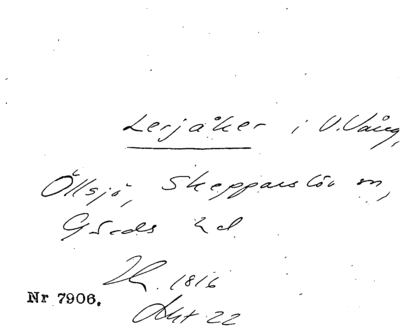 Lerjåker i V.Vång,
Öllsjö, Skepparslöv sn,
Gärds hd
1816
Nr 7906. Akt 22